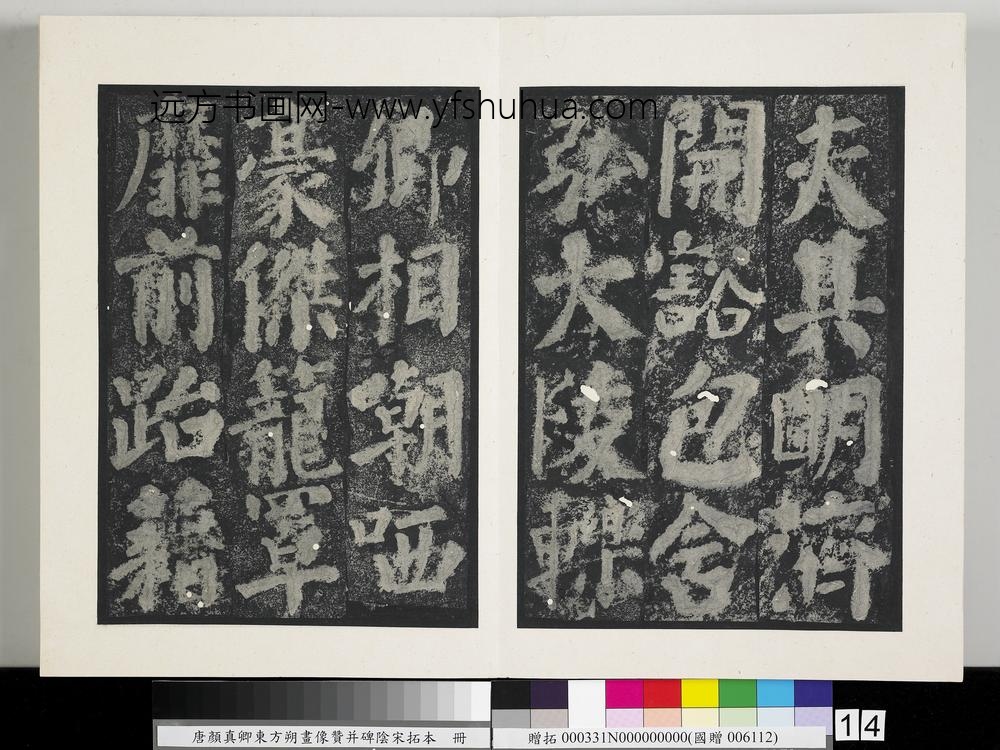 远方书画网-www.yfshuhua.com
夫其明濟
開豁包含
弘大陵轢
卿相嘲哂
豪傑籠罩
靡前跆籍
唐顏真卿東方朔畫像贊并碑陰宋拓本 冊
贈拓 000331N000000000(國贈 006112)
14